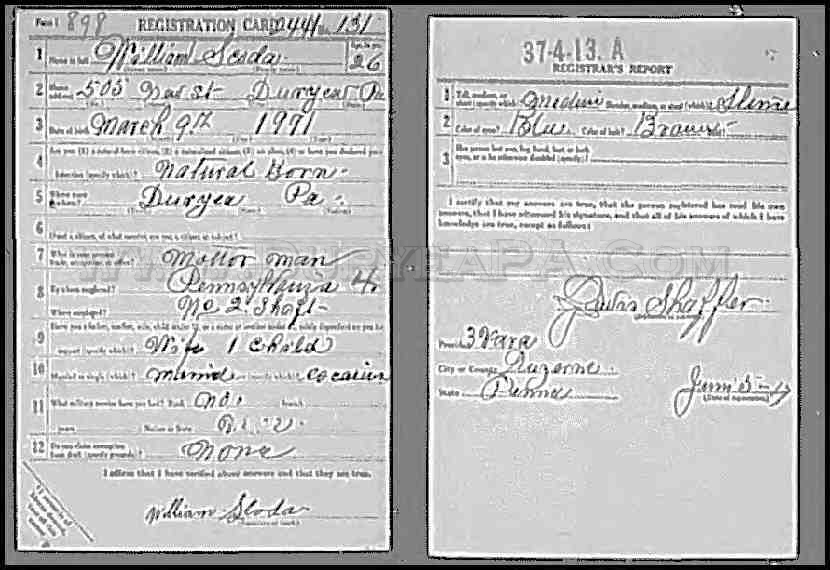 Form 1 898 REGISTRATION CARD 2441 No. 131
1 Name in full William Scoda Age, in yrs. 26
2 Home address 505 St Duryea Pa
3 Date of birth March 9th
4 Are you (1) a natural-born citizen, (2) a naturalized citizen, (3) an alien, (4) or have you declared your
intention (specify which)? Natural Born
5 Where were you born? Duryea Pa
6 If not a citizen, of what country are you a citizen or subject?
7 What is your present trade, occupation, or office? Mottor man
8 By whom employed?
Where employed? No 2 Shaft
9 Have you a father, mother, wife, child under 12, or a sister or brother under 12, solely dependent on you for
support (specify which)? Wife 1 Child
10 Married or single (which)? Race (specify which)?
11 What military service have you had? Rank No branch
years Nation or State
12 Do you claim exemption from draft (specify grounds)? None
I affirm that I have verified above answers and that they are true.
William Scoda
37-4-13. A
REGISTRAR'S REPORT
1 Tall, medium, or short (specify which)? Slender, medium, or stout (which)?
2 Color of eyes? Blu Color of hair? Brown
3 Has person lost arm, leg, hand, foot, or both
eyes, or is he otherwise disabled (specify)?
I certify that my answers are true, that the person registered has read his own
answers, that I have witnessed his signature, and that all of his answers of which I have
knowledge are true, except as follows:
WWW.DURYEAPA.COM
Shaffer
Precinct 3
City or County Luzerne
State Penna June 5-17